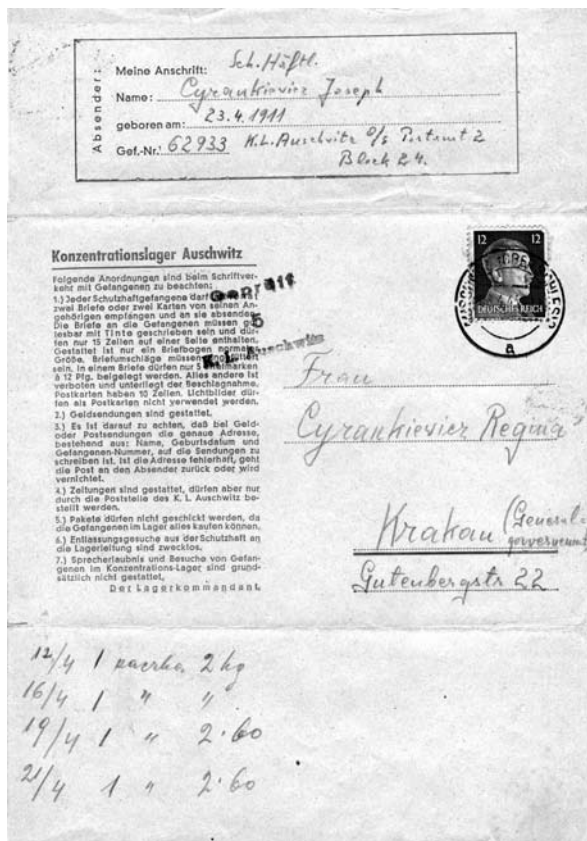 Absender:
Meine Anschrift: Sch. Häftl.
Name: Cyrankievicz Joseph
geboren am: 23.4.1911
Gef.-Nr. 62933 K.L. Auschwitz O/S Postamt 2
Block 24.
12 12
DEUTSCHES REICH
a
Konzentrationslager Auschwitz
Folgende Anordnungen sind beim Schriftver-
kehr mit Gefangenen zu beachten:
1.) Jeder Schutzhaftgefangene darf
zwei Briefe oder zwei Karten von seinen An-
gehörigen empfangen und an sie absenden.
Die Briefe an die Gefangenen müssen gut
lesbar mit Tinte geschrieben sein und dür-
fen nur 15 Zeilen auf einer Seite enthalten.
Gestattet ist nur ein Briefbogen normaler
Größe. Briefumschläge müssen ungefüttert
sein. In einem Briefe dürfen nur 5 Briefmarken
à 12 Pfg. beigelegt werden. Alles andere ist
verboten und unterliegt der Beschlagnahme.
Postkarten haben 10 Zeilen. Lichtbilder dür-
fen als Postkarten nicht verwendet werden.
2.) Geldsendungen sind gestattet.
3.) Es ist darauf zu achten, daß bei Geld-
oder Postsendungen die genaue Adresse,
bestehend aus: Name, Geburtsdatum und
Gefangenen-Nummer, auf die Sendungen zu
schreiben ist. Ist die Adresse fehlerhaft, geht
die Post an den Absender zurück oder wird
vernichtet.
4.) Zeitungen sind gestattet, dürfen aber nur
durch die Poststelle des K. L. Auschwitz be-
stellt werden.
5.) Pakete dürfen nicht geschickt werden, da
die Gefangenen im Lager alles kaufen können.
6.) Entlassungsgesuche aus der Schutzhaft an
die Lagerleitung sind zwecklos.
7.) Sprecherlaubnis und Besuche von Gefan-
genen im Konzentrations-Lager sind grund-
sätzlich nicht gestattet.
Der Lagerkommandant.
Geprüft
5
K. L. Auschwitz
Frau
Cyrankievicz Regina
Krakau (General-
gouvernement)
Gutenbergstr 22
12/4 1 paczka 2 kg
16/4 1 " "
19/4 1 " 2.60
21/4 1 " 2.60